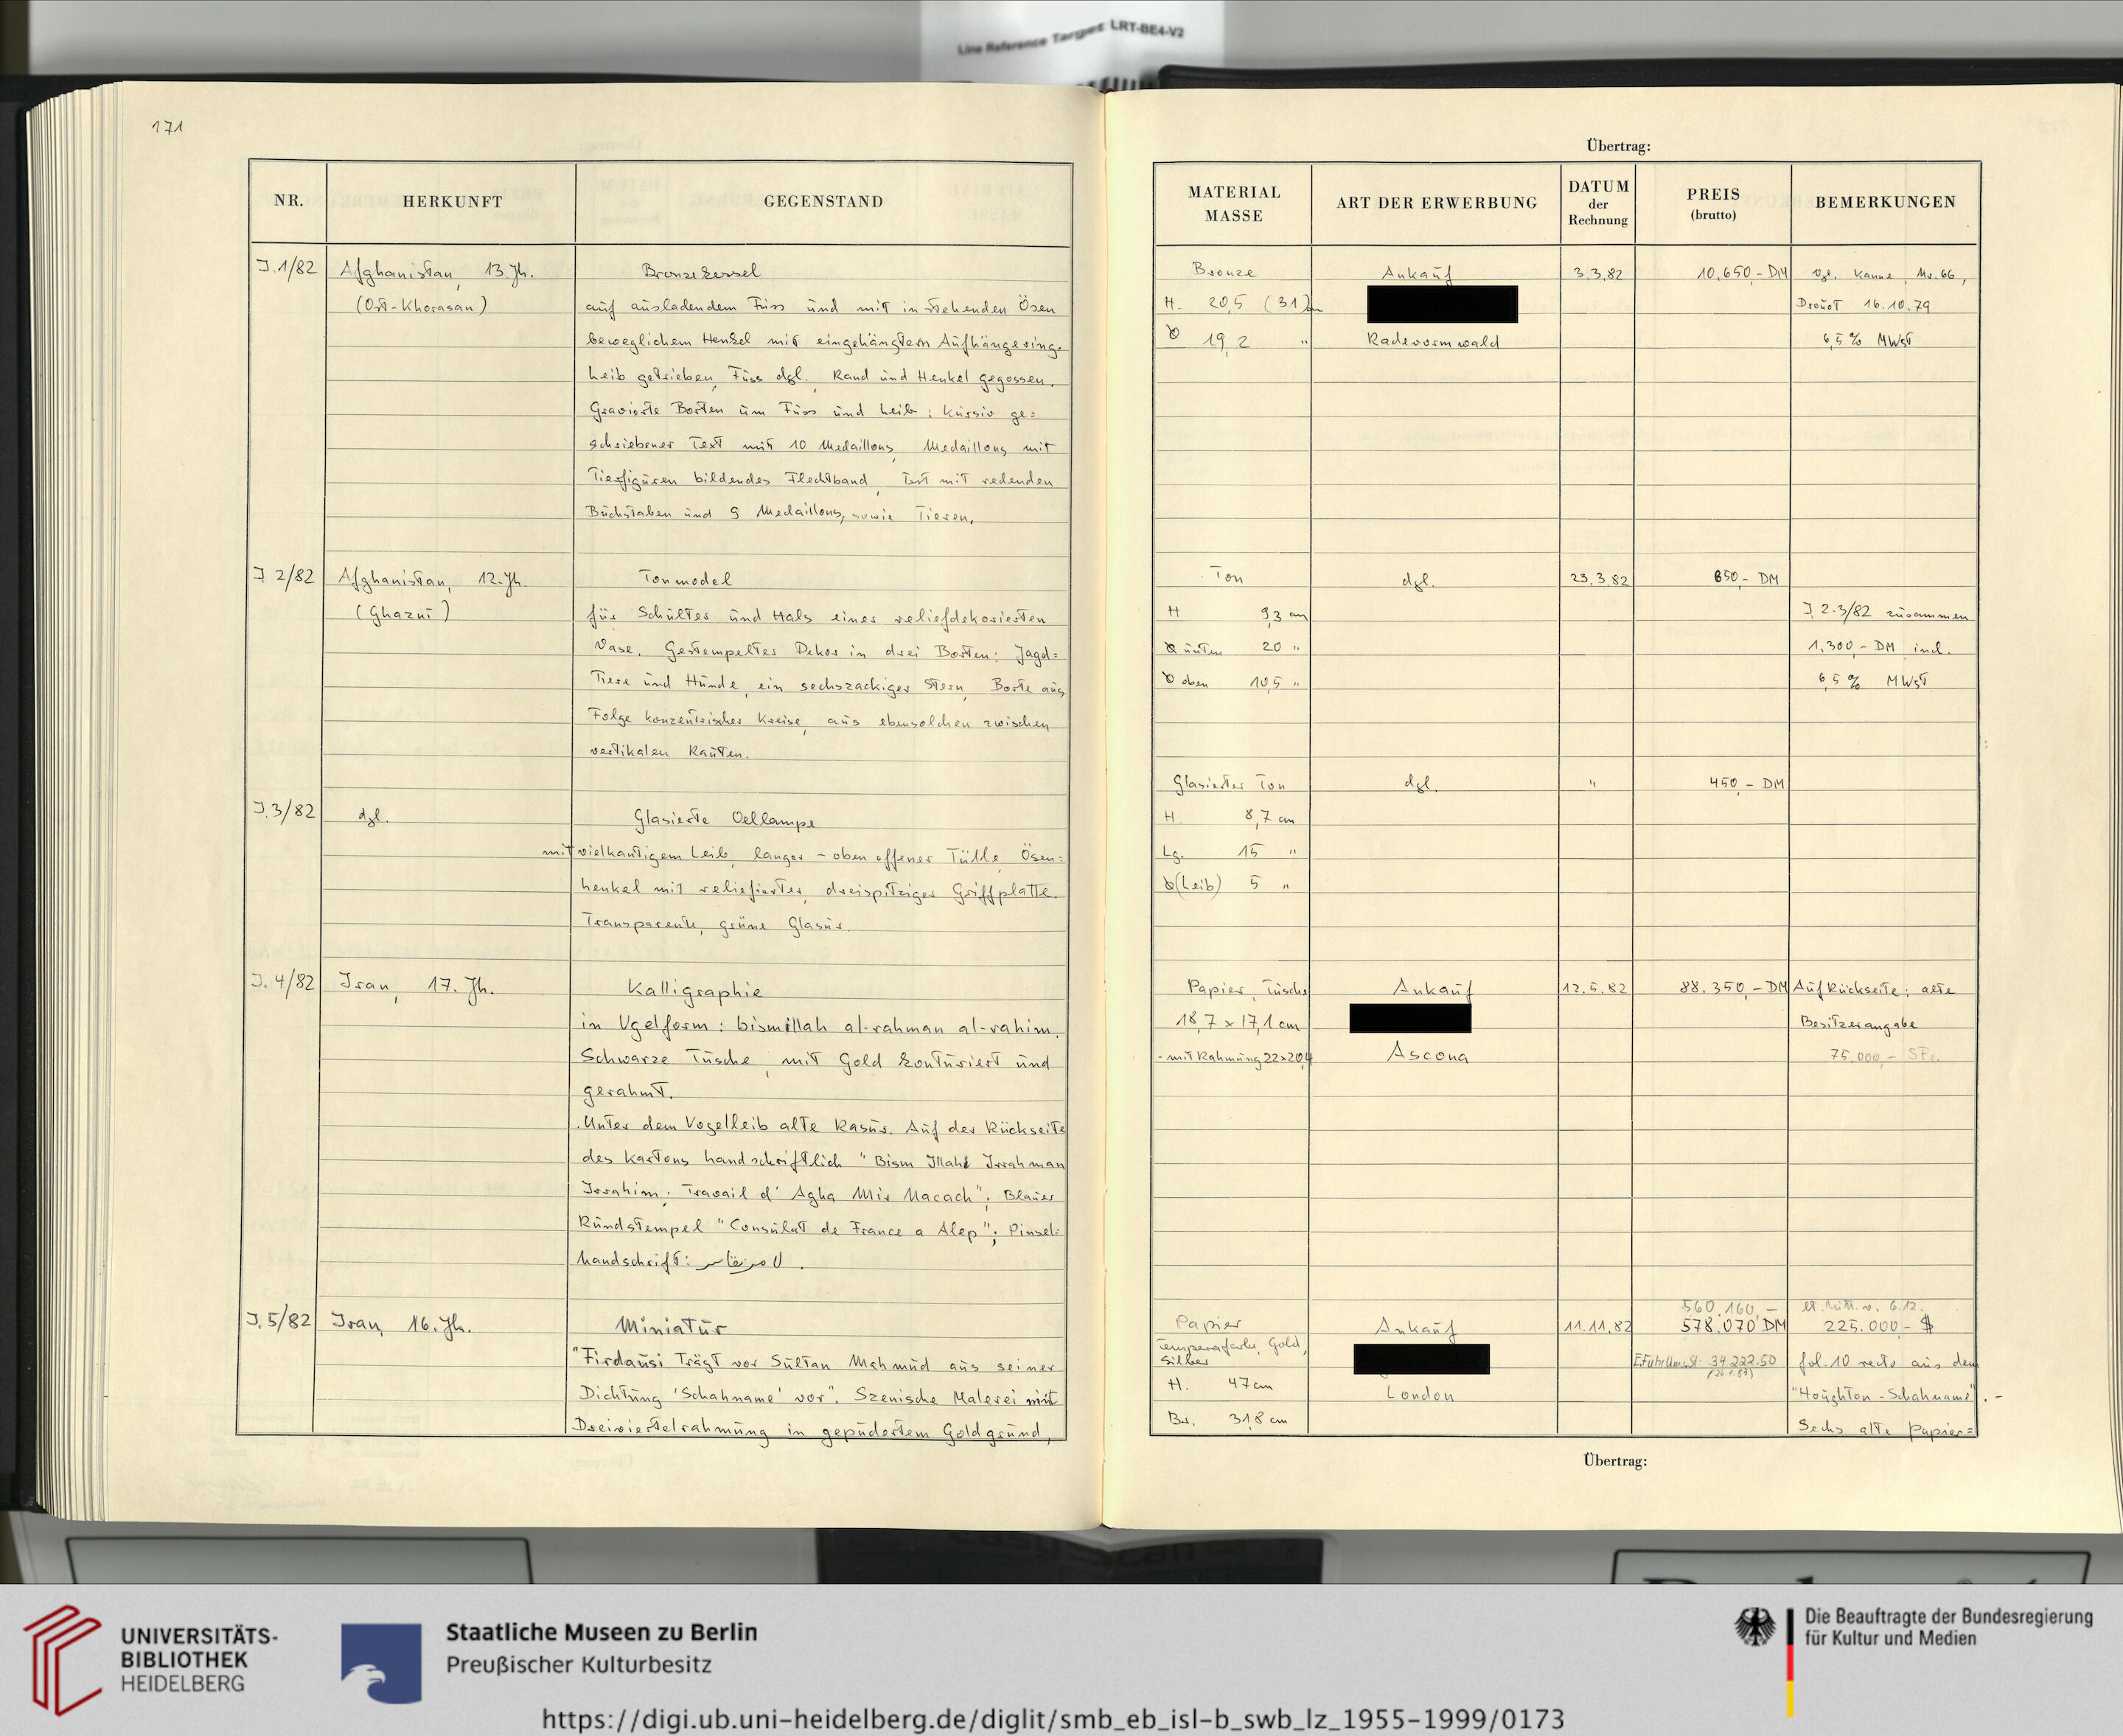 Line Reference Target LRT-BE4-V2
171
NR.
HERKUNFT
GEGENSTAND
J.1/82 Afghanistan, 13. Jh. Bronzekessel
(Ost-Khorasan) auf ausladendem Fuss und mit in stehenden Ösen
beweglichem Henkel mit eingehängtem Aufhängering.
Leib getrieben, Fuss dgl., Rand und Henkel gegossen.
Gravierte Borten um Fuss und Leib: kursiv ge=
schriebener Text mit 10 Medaillons, Medaillons mit
Tierfiguren bildendes Flechtband, Text mit redenden
Buchstaben und 9 Medaillons, sowie Tieren.
J 2/82 Afghanistan, 12. Jh. Tonmodel
(Ghazni) für Schulter und Hals einer reliefdekorierten
Vase. Gestempelter Dekor in drei Borten: Jagd=
Tiere und Hunde, ein sechszackiger Stern, Borte aus
Folge konzentrischer Kreise, aus ebensolchen zwischen
vertikalen Rauten.
J.3/82 dgl. Glasierte Oellampe
mit vielkantigem Leib, langer - oben offener Tülle, Ösen=
henkel mit reliefierter, dreispitziger Griffplatte.
Transparente, grüne Glasur.
J. 4/82 Iran, 17. Jh. Kalligraphie
in Vgelform: bismillah al-rahman al-rahim.
Schwarze Tusche, mit Gold konturiert und
gerahmt.
Unter dem Vogelleib alte Rasur. Auf der Rückseite
des Kartons handschriftlich "Bism Illahi Irrahman
Irrahim. Travail d' Agha Mir Macach"; Blauer
Rundstempel "Consulat de France a Alep"; Pinsel=
handschrift:
J.5/82 Iran, 16. Jh. Miniatur
"Firdausi trägt vor Sultan Mahmud aus seiner
Dichtung 'Schahname' vor". Szenische Malerei mit
Dreiviertelrahmung in gepudertem Goldgrund,
Übertrag:
MATERIAL
MASSE
ART DER ERWERBUNG
DATUM
der
Rechnung
PREIS
(brutto)
BEMERKUNGEN
Bronze Ankauf 3.3.82 10.650,- DM Vgl. Kanne, Nr. 66,
H. 20,5 (31) cm Drouot 16.10.79
Ø 19,2 " Radevormwald 6,5% MWSt
Ton dgl. 23.3.82 850,- DM
H 9,3 cm J. 2.3/82 zusammen
Ø unten 20 " 1.300,- DM incl.
Ø oben 10,5 " 6,5% MWSt
Glasierter Ton dgl. " 450,- DM
H. 8,7 cm
Lg. 15 "
Ø (Leib) 5 "
Papier, Tusche Ankauf 12.5.82 88.350,- DM Auf Rückseite: alte
18,7 x 17,1 cm Besitzerangabe
- mit Rahmung 22x20,4 Ascona 75.000,- SFr.
560.160,- lt. Mitt. v. 6.12.
Papier Ankauf 11.11.82 578.070 DM 225.000,- $
Temperafarbe, Gold,
Silber 34.222.50 fol. 10 recto aus dem
H. 47 cm London "Houghton-Schahname".-
Br. 31,8 cm Sechs alte Papier=
Übertrag:
UNIVERSITÄTS-
BIBLIOTHEK
HEIDELBERG
Staatliche Museen zu Berlin
Preußischer Kulturbesitz
Die Beauftragte der Bundesregierung
für Kultur und Medien
https://digi.ub.uni-heidelberg.de/diglit/smb_eb_isl-b_swb_lz_1955-1999/0173